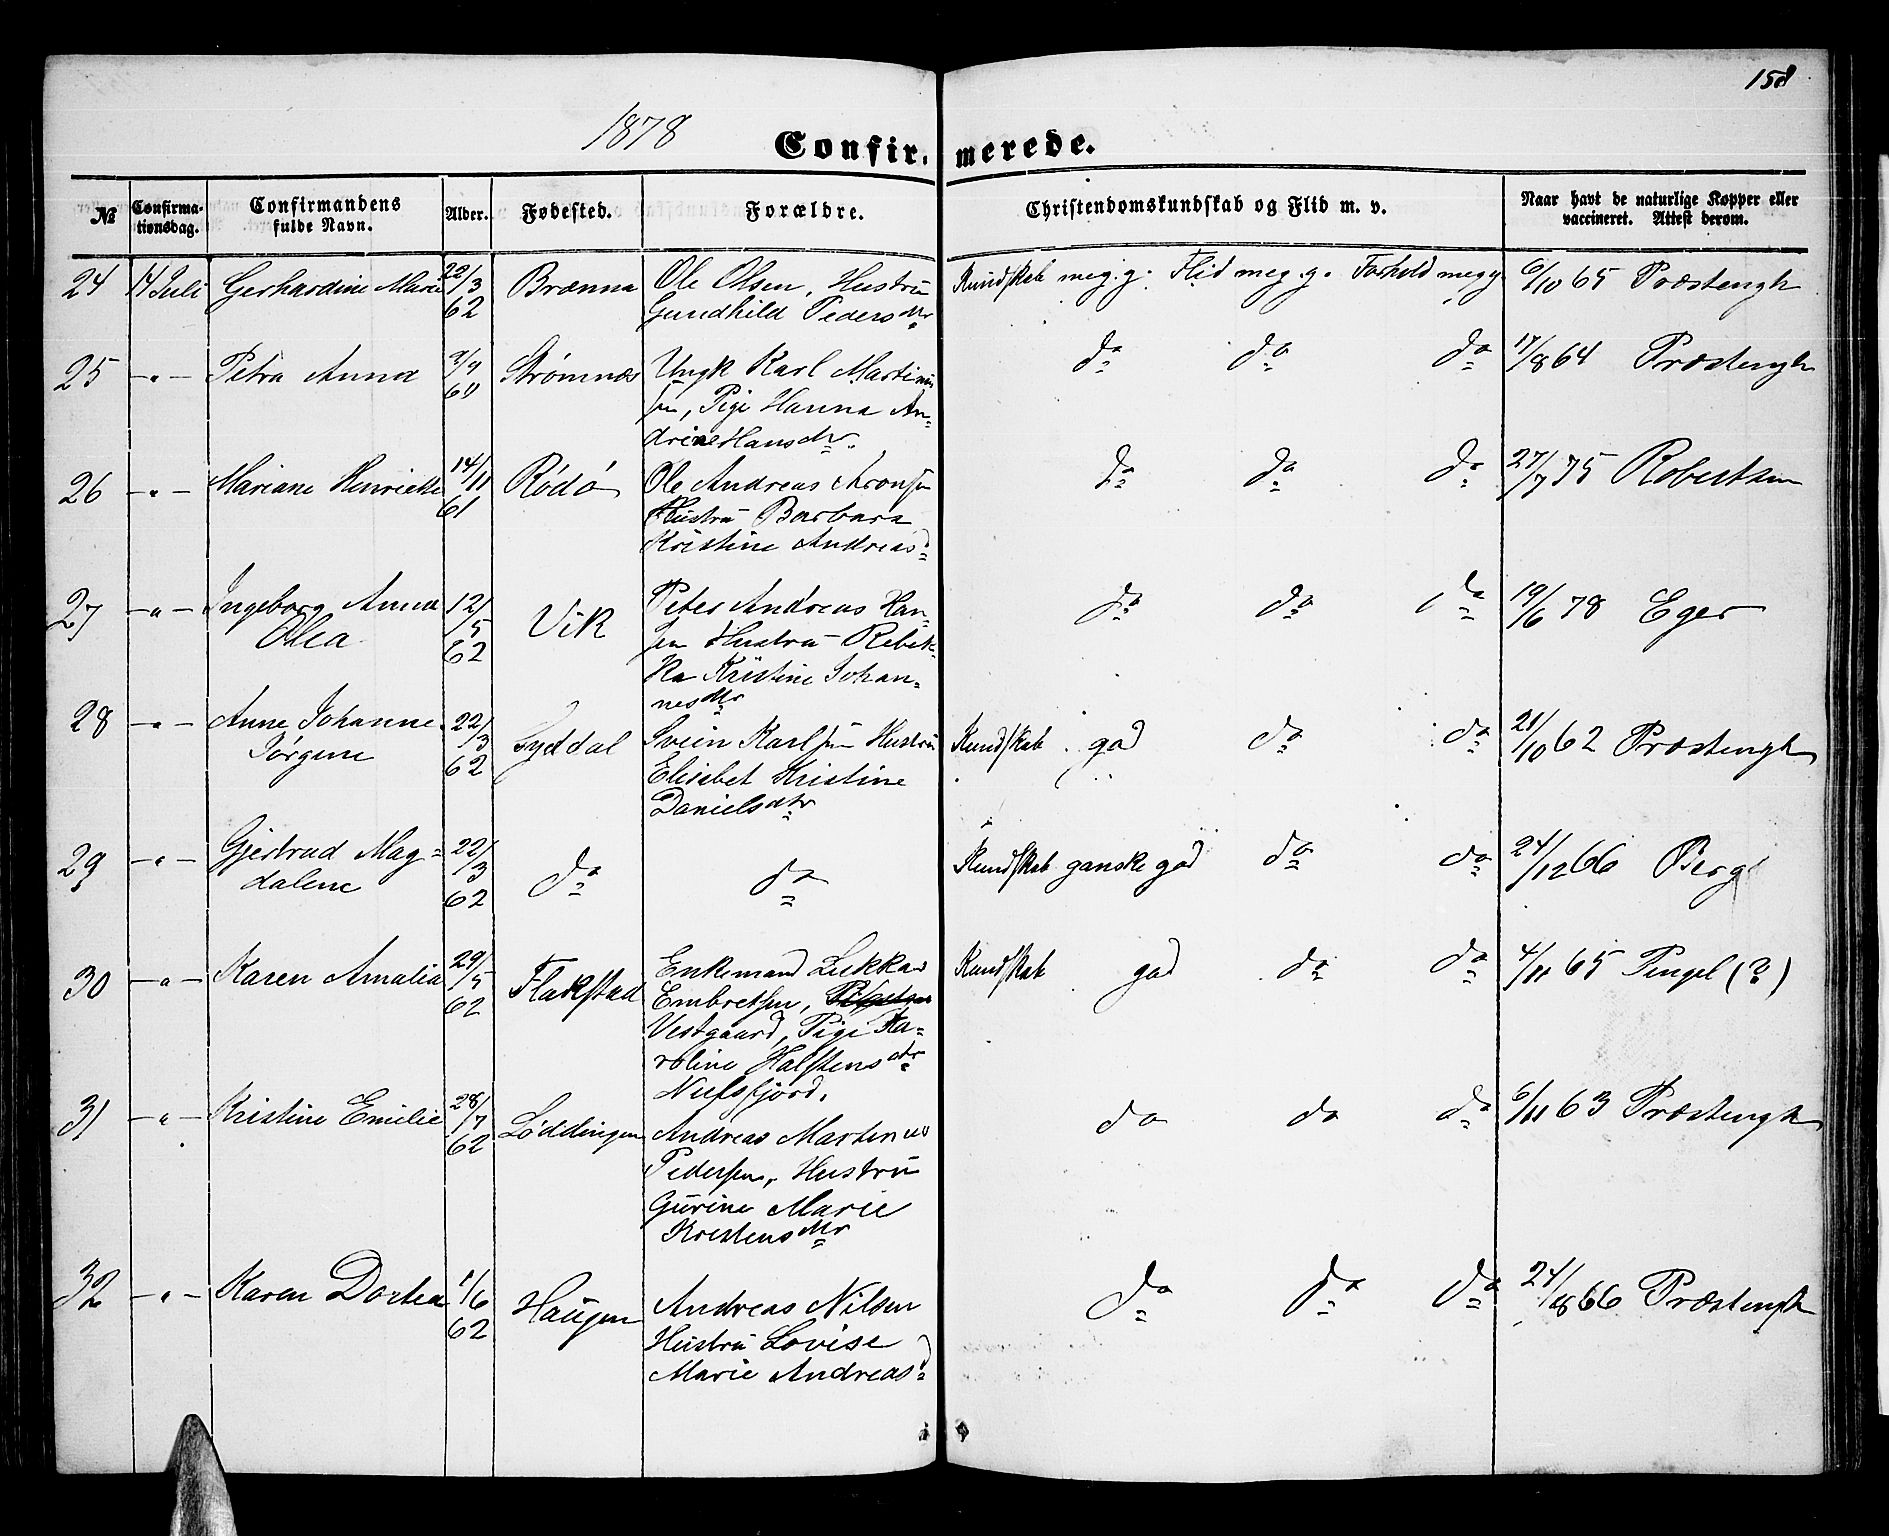 158
1878
Confir- merede.
№ Confirma-tionsdag. Confirmandens fulde Navn. Alder. Fødested. Forældre. Christendomskundskab og Flid m. v. Naar havt de naturlige Kopper eller vaccineret. Attest derom.
24 14 Juli Gerhardine Marie 22/3 62 Brænna Ole Olsen, Hustru Kundskab meg. g. Flid meg. g. Forhold meg g 6/10 65 Præstengh
Gundhild Pedersdtr
25 -"- Petra Anna Strømnæs Ungk Karl Martinus do do do 17/8 64 Præstengh
sen, Pige Hanna An-
drine Hansdtr.
26 -"- Mariane Henriette 14/11 61 Rødø Ole Andreas Aronsen do do do 27/7 75 Robertsen
Hustru Barbara
Kristine Andreasd
27 -"- Ingeborg Anna 12/5 62 Vik Peter Andreas Han- do do do 19/6 78 Eger
Olea sen Hustru Rebek-
ka Kristine Johan-
nesdtr
28 -"- Anne Johanne 22/3 62 Syddal Svein Karlsen Hustru Kundskab god do do 21/10 62 Præstengh
Jørgine Elisabet Kristine
Danielsdtr
29 -"- Gjertrud Mag- 22/3 62 do do Kundskab ganske god do do 24/12 66 Berg
dalene
30 -"- Karen Amalia 29/5 62 Flakstad Enkemand Lukkas Kundskab god do do 4/11 65 Pingel (?)
Embretsen,
Vestgaard, Pige Ka-
roline Halstensdtr
Nufsfjord.
31 -"- Kristine Emilie 28/7 62 Løddingen Andreas Martinus do do do 6/11 63 Præstengh
Pedersen, Hustru
Gurine Marie
Kristensdtr
32 -"- Karen Dortea 1/6 62 Haugen Andreas Nilsen do do do 24/8 66 Præstengh
Hustru Lovise
Marie Andreasd